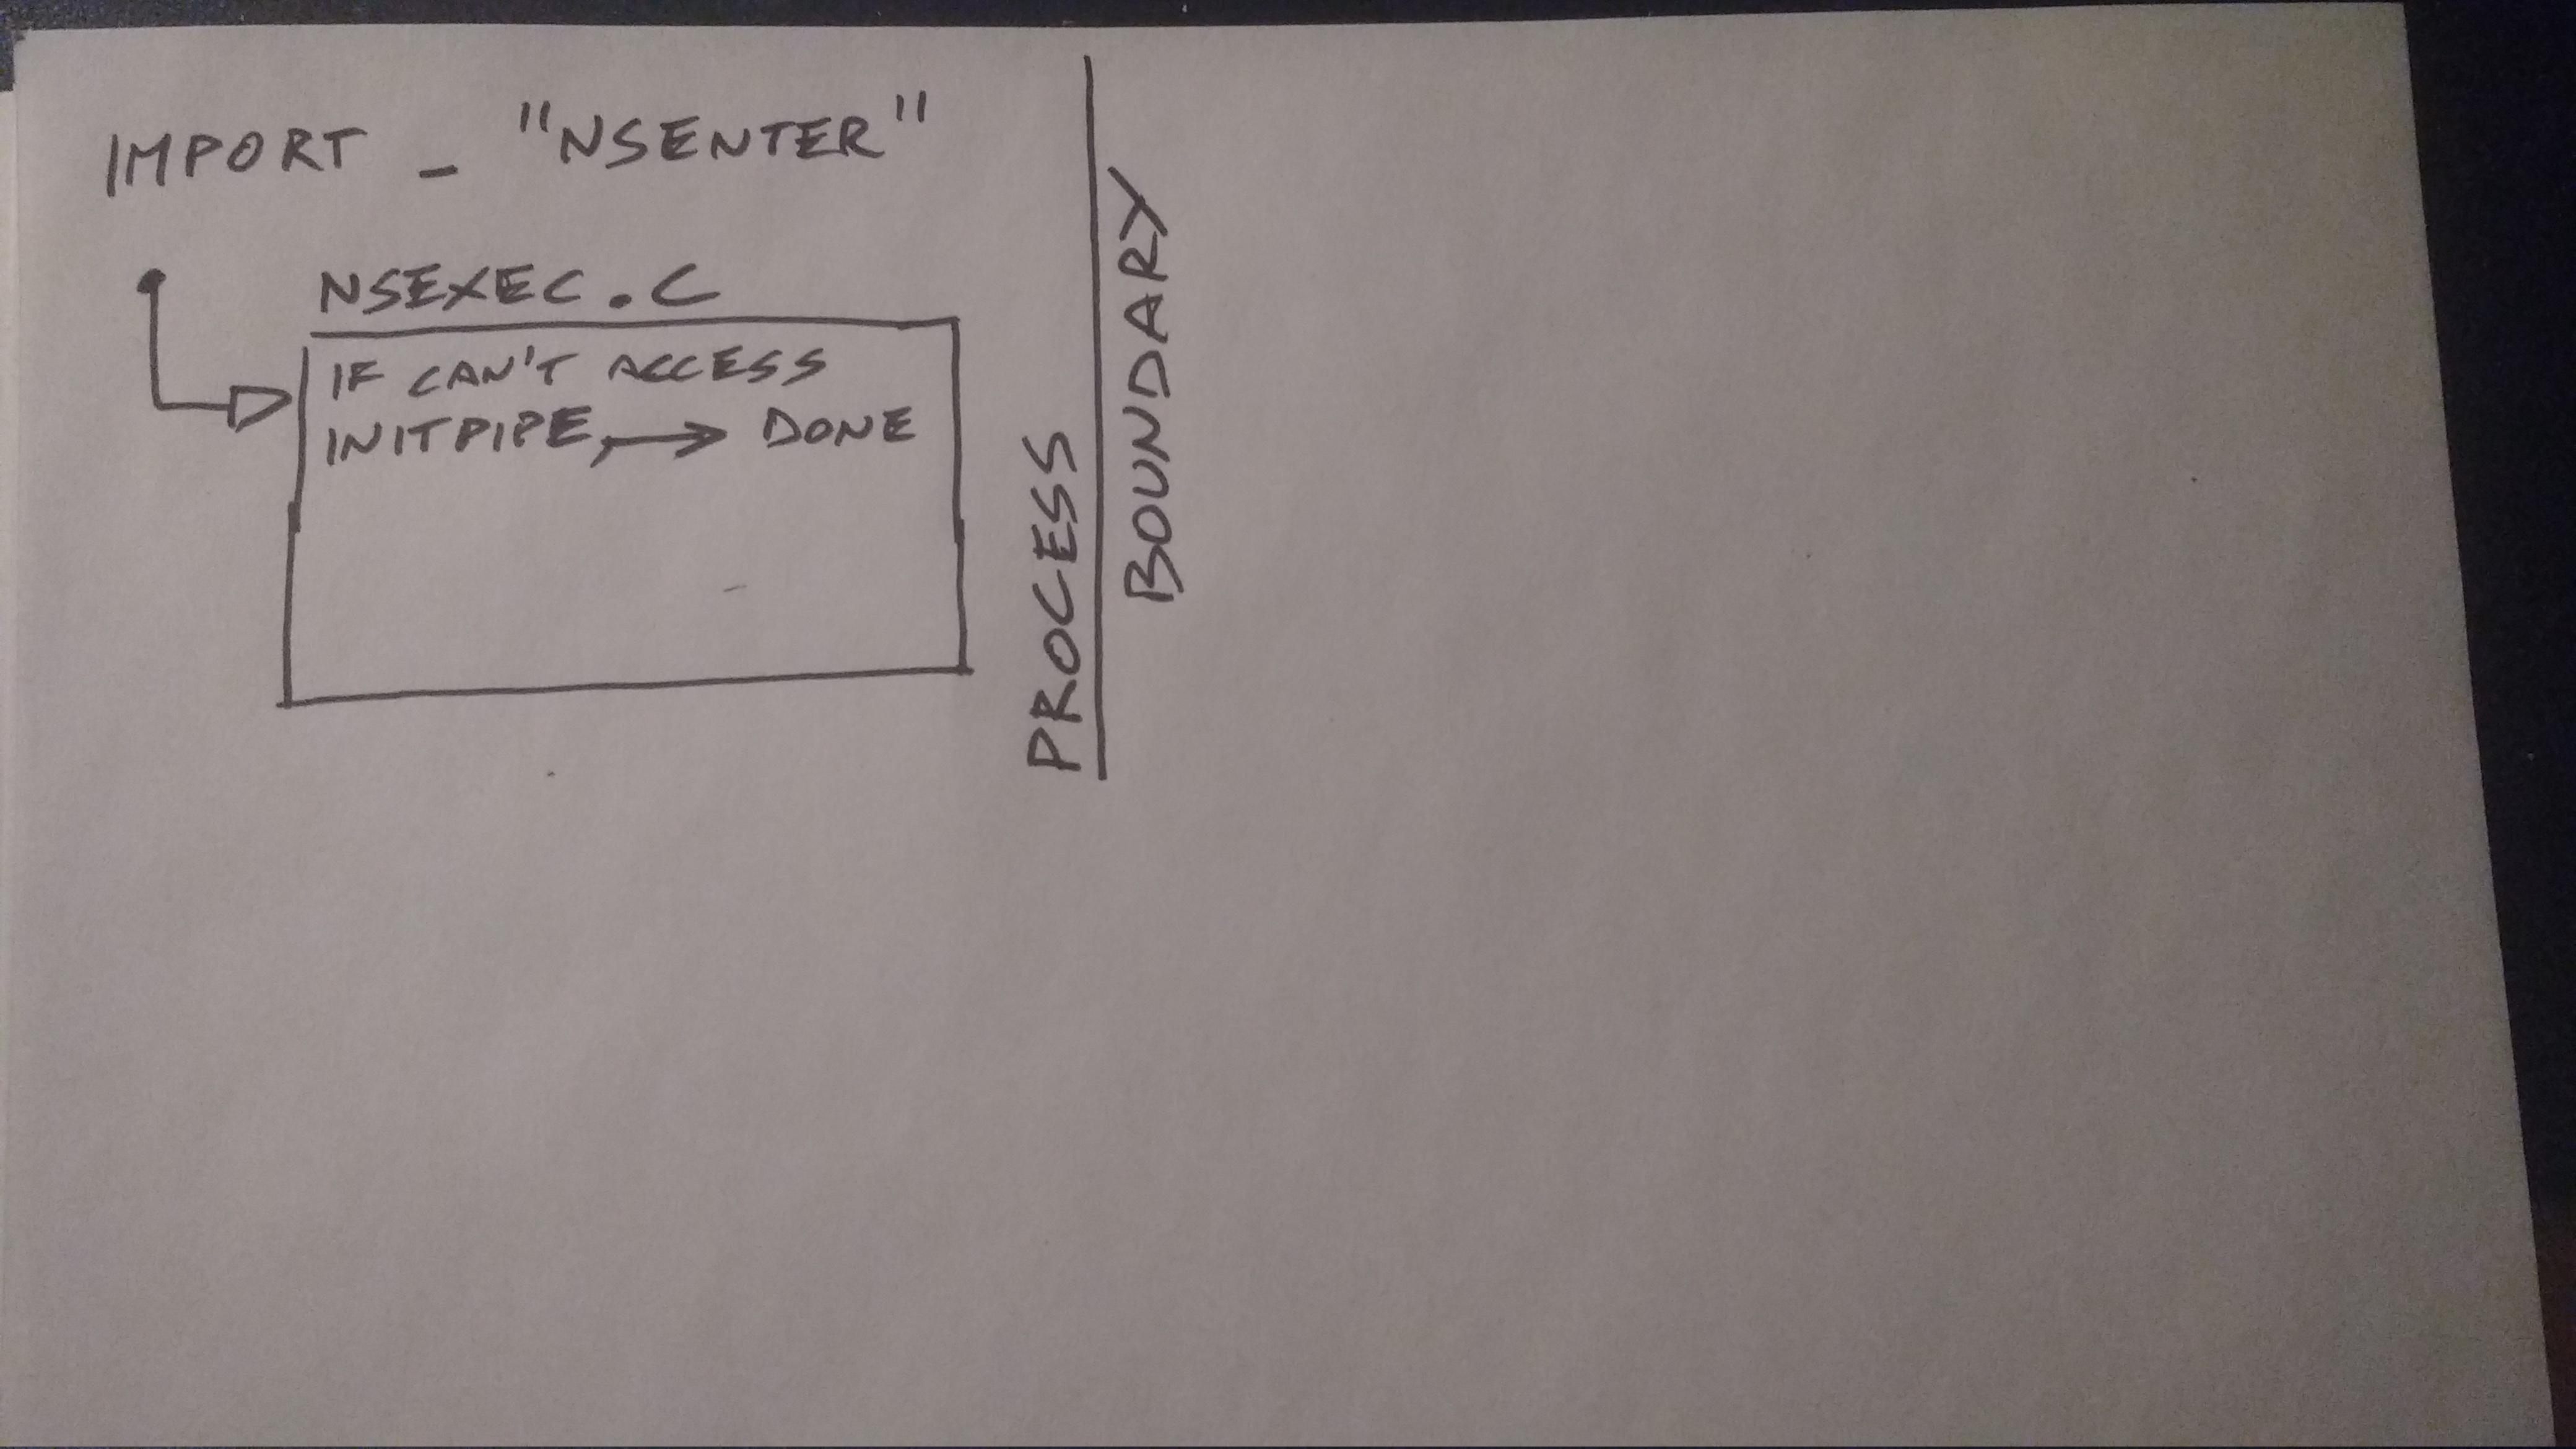 IMPORT _ "NSENTER"
NSEXEC.C
IF CAN'T ACCESS
INITPIPE, → DONE
PROCESS
BOUNDARY